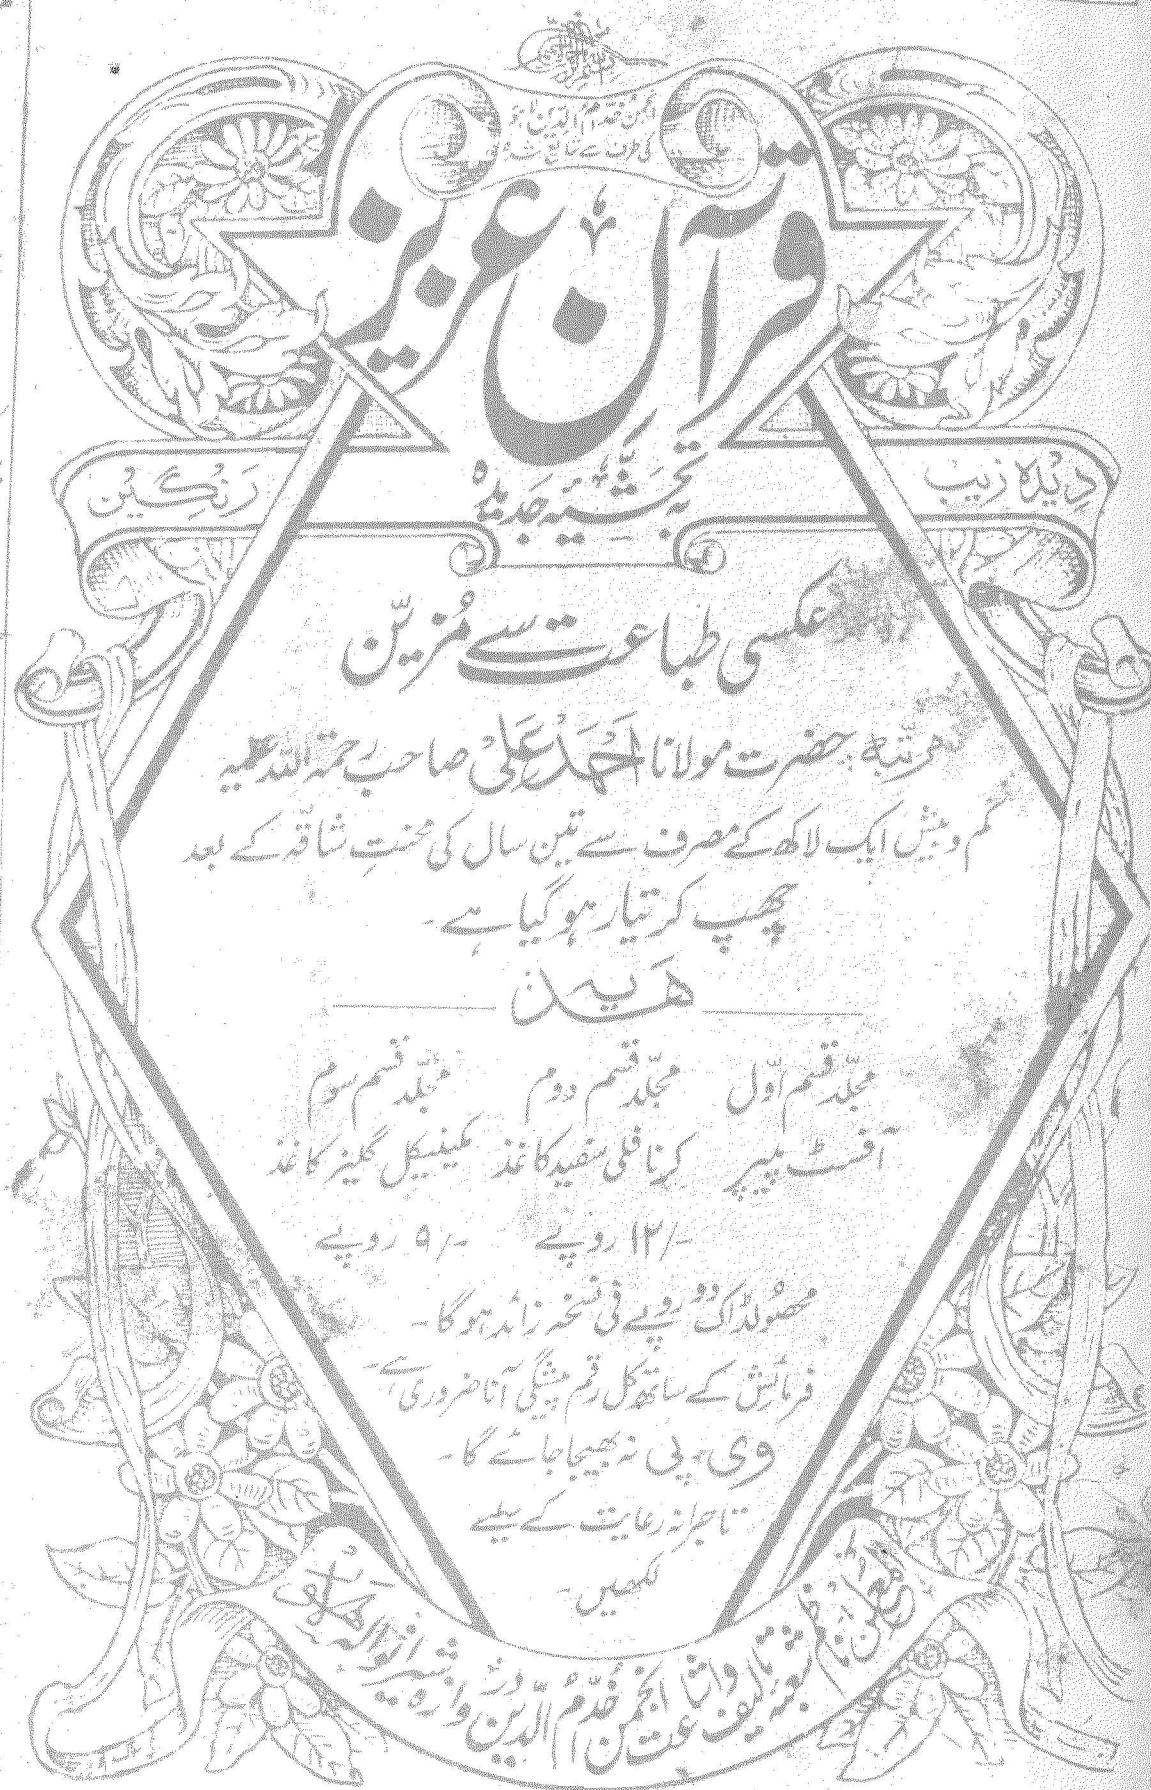 انجمن خدام الدین لاہور
کی طرف سے شائع شدہ
قرآن عزیز
دیدہ زیب
بہ تحشیۂ جدیدہ
رنگین
عکسی طباعت سے مُزیّن
مرتبہ حضرت مولانا احمد علی صاحب رحمۃ اللہ علیہ
کم و بیش ایک لاکھ کے مصرف سے تین سال کی محنتِ شاقّہ کے بعد
چھپ کر تیار ہو گیا ہے۔
ھدیہ
مجلّد قسم اوّل مجلّد قسم دوم مجلّد قسم سوم
آفسٹ پیپر کرنافلی سفید کاغذ کیمیکل گلیز کاغذ
۱۲/- روپے ۹/- روپے
محصولڈاک دو روپے فی نسخہ زائد ہوگا۔
فرمائش کے ساتھ کل رقم پیشگی آنا ضروری ہے۔
وی۔ پی نہ بھیجا جائے گا۔
تاجرانہ رعایت کے لیے
لکھیں۔
شعبہ تالیف و اشاعت انجمن خدّام الدّین دروازہ شیرانوالہ لاہور